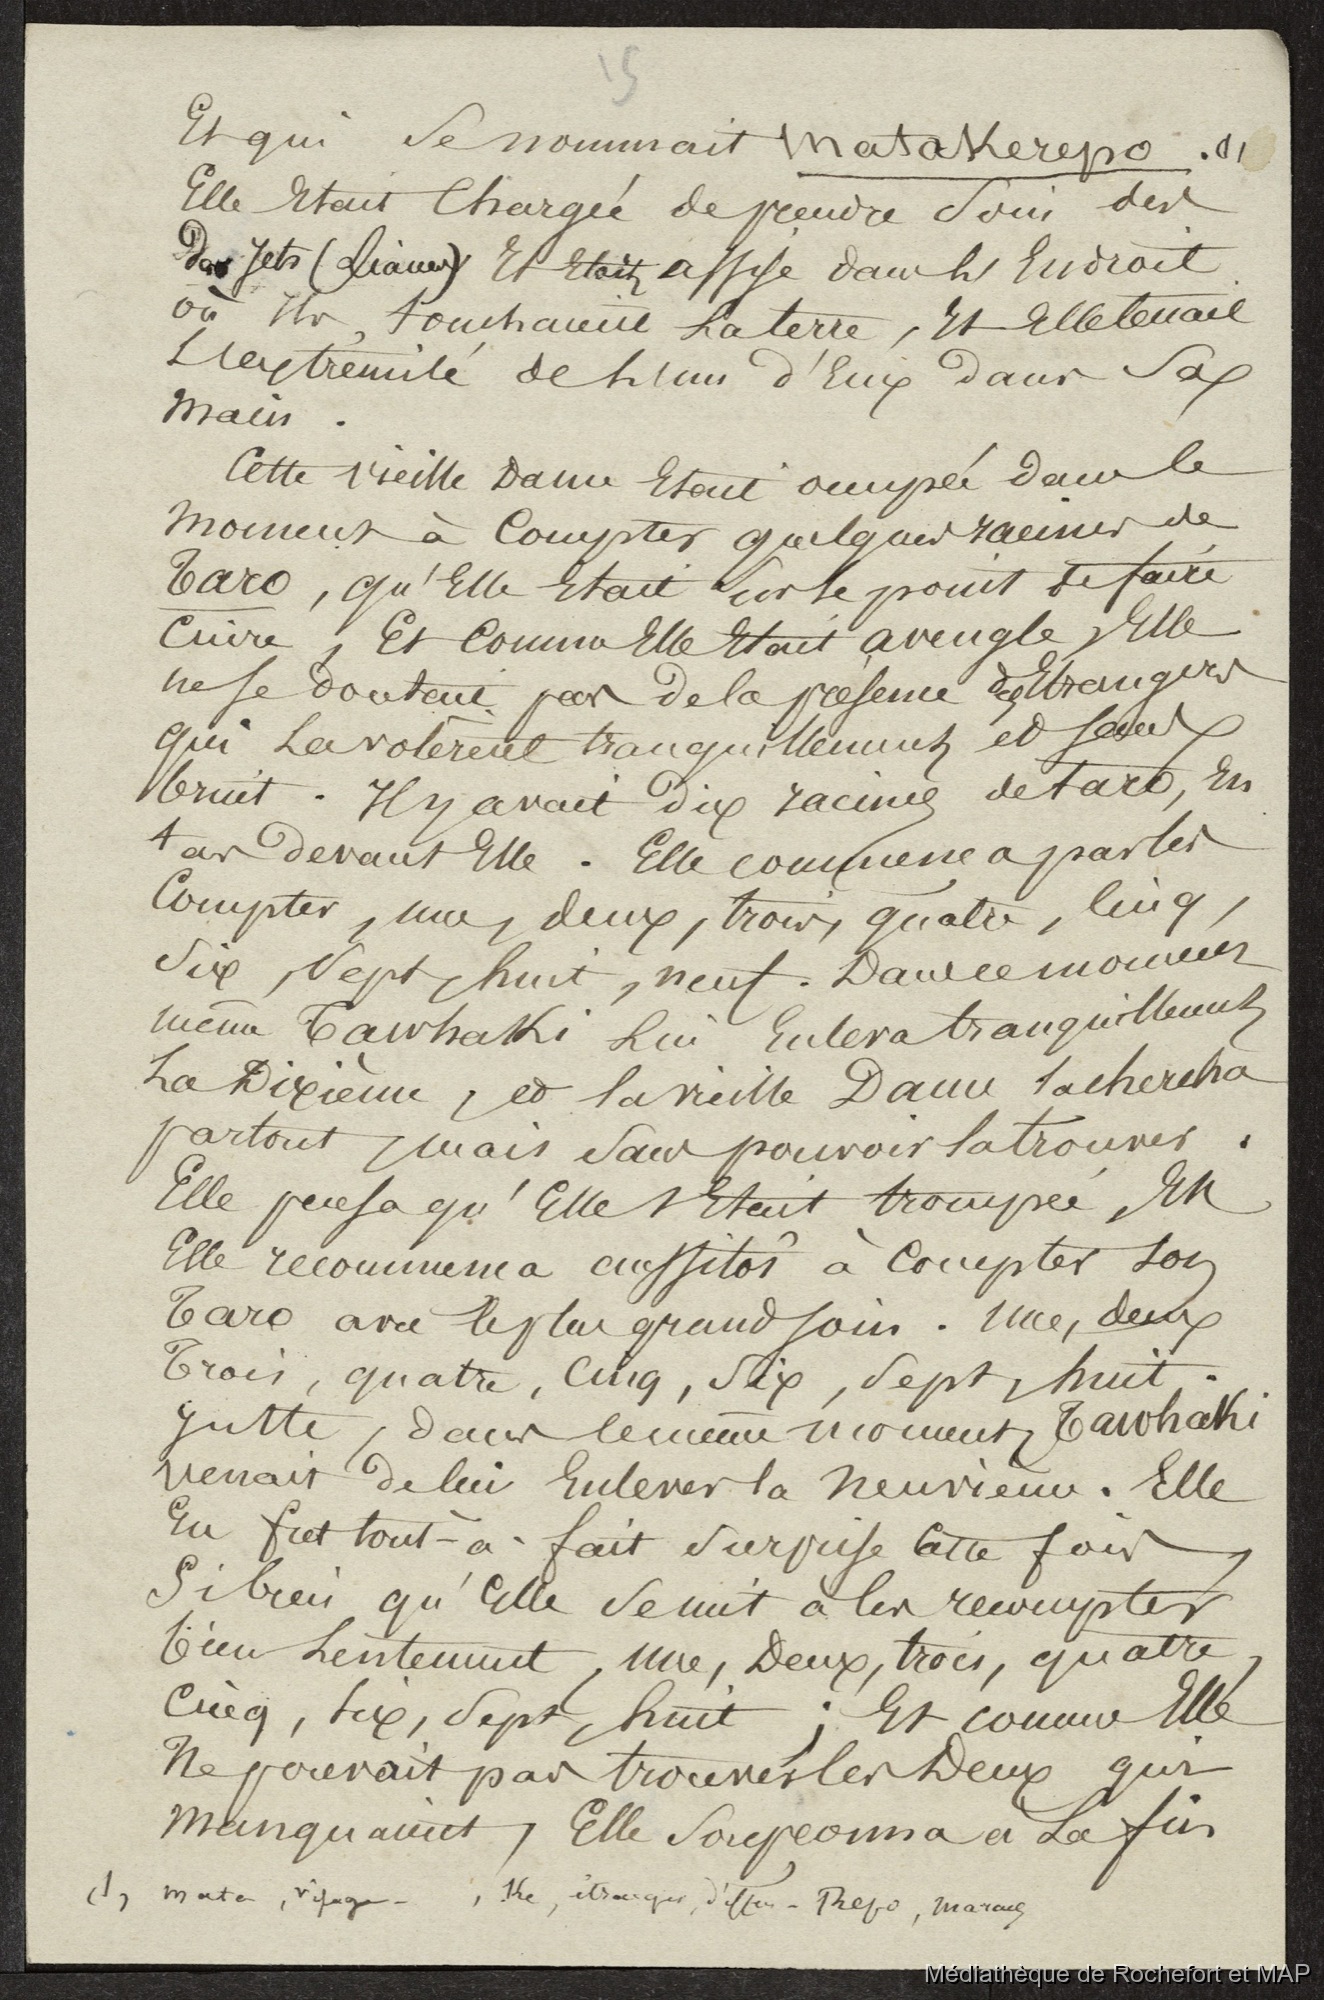 15
Et qui se nommait Matakerepo . (1)
Elle Etait Chargée de prendre Soin des
Jets (Lianes) Et Etait assise dans l'Endroit
où Ils touchaient La terre, Et Elle tenait
L'extrémité de l'un d'Eux Dans Sa
Main .
Cette vieille Dame Etait occupée dans le
Moment à Compter quelques racines de
Taro, qu'Elle Etait sur le point de faire
Cuire, Et Comme Elle Etait aveugle, Elle
ne se doutait pas De la présence des Etrangers
qui La volèrent tranquillement et sans
bruit . Il y avait Dix racines de taro, En
tas Devant Elle . Elle commença par les
Compter, une, deux, trois, quatre, Cinq,
Six, Sept, huit, neuf . Dans ce moment
même Tawhaki Lui Enleva tranquillement
La Dixième, et la vieille Dame la chercha
partout, mais Sans pouvoir la trouver .
Elle pensa qu'Elle s'Etait trompée, Et
Elle recommença aussitôt à Compter Son
Taro avec le plus grand soin . Une, deux
Trois, quatre, Cinq, Six, Sept, huit .
Juste, dans le même moment, Tawhaki
venait De lui Enlever la Neuvième . Elle
En fut tout-à-fait Surprise Cette fois,
Si bien qu'Elle Se mit à les recompter
bien Lentement, Une, Deux, trois, quatre,
Cinq, Six, Sept, huit ; Et comme Elle
Ne pouvait pas trouver les Deux qui
Manquaient, Elle Soupçonna à La fin
(1) Mata, visage - , Ke, étranger, - Repo, Marais
Médiathèque de Rochefort et MAP